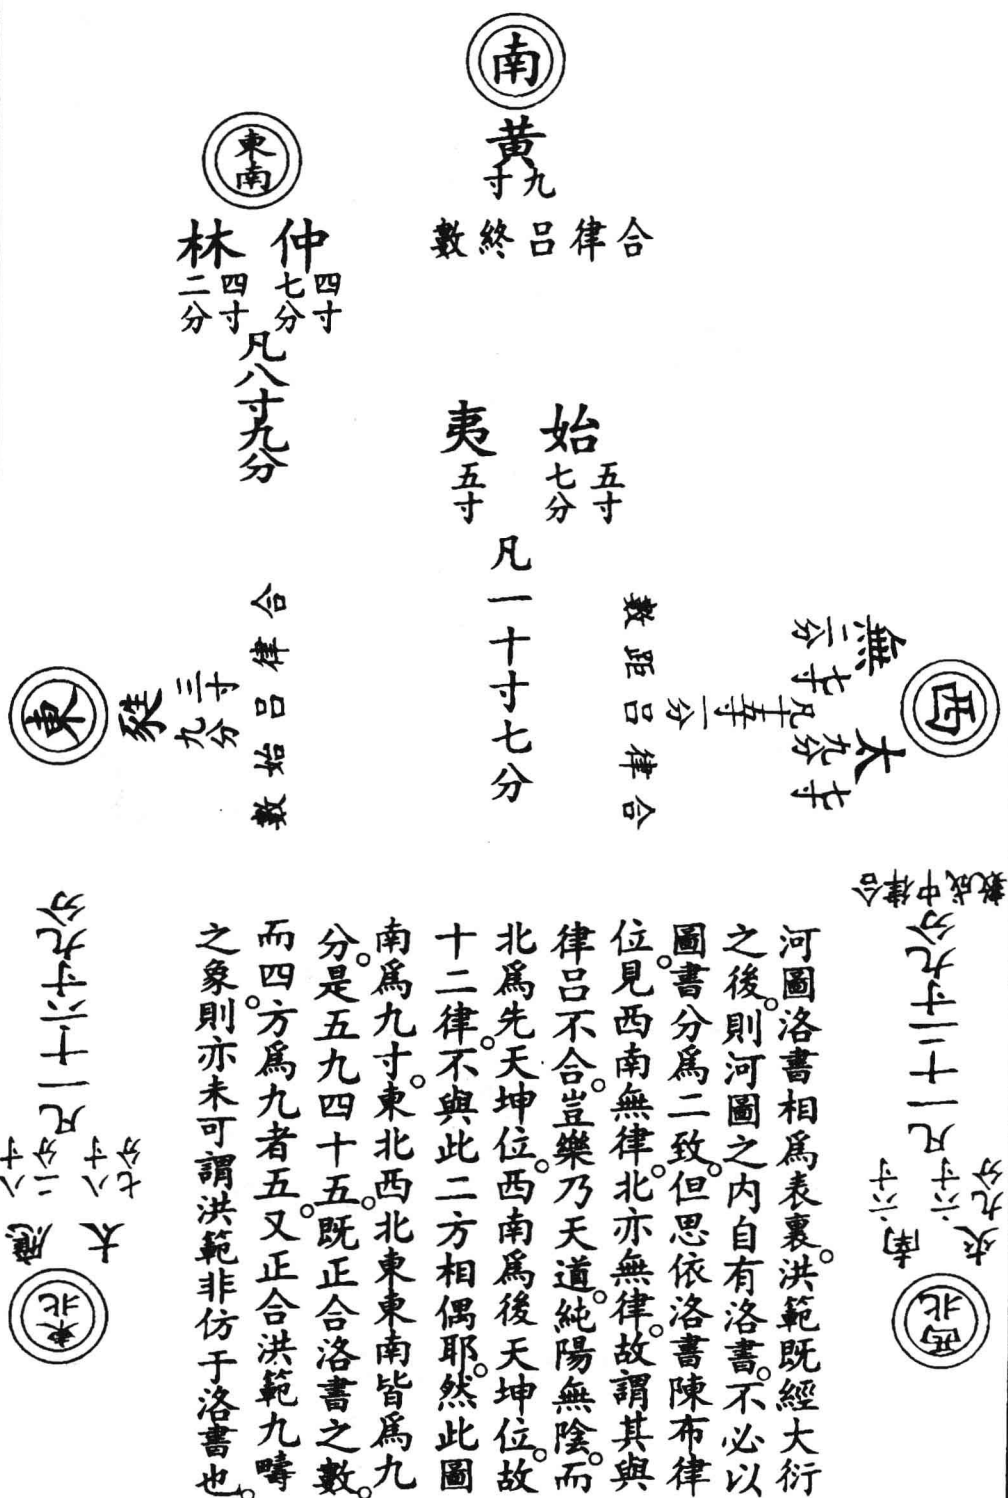 南
黃
九寸
合律呂終數
東南
仲
四寸
七分
林
四寸
二分
凡八寸九分
始
五寸
七分
夷
五寸
凡一十寸七分
西
無
七寸
二分
太
七寸
九分
凡十五寸一分
合律呂距數
東
蕤
三寸
九分
合律呂始數
西北
夾
六寸
九分
南
六寸
凡一十二寸九分
合律中成數
東北
大
八寸
七分
應
八寸
二分
凡一十六寸九分
河圖洛書相爲表裏。洪範既經大衍
之後。則河圖之內自有洛書。不必以
圖書分爲二致。但思依洛書陳布律
位。見西南無律。北亦無律。故謂其與
律呂不合。豈樂乃天道。純陽無陰。而
北爲先天坤位。西南爲後天坤位。故
十二律。不與此二方相偶耶。然此圖
南爲九寸。東北西北東東南皆爲九
分。是五九四十五。既正合洛書之數。
而四方爲九者五。又正合洪範九疇
之象。則亦未可謂洪範非仿于洛書也。